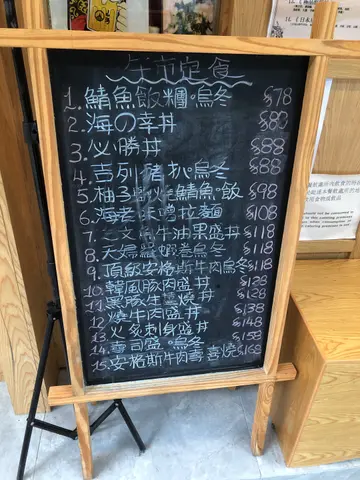 午市定食
1. 鯖魚飯糰。烏冬 $78
2. 海の幸丼 $80
3. 必勝丼 $88
4. 吉列豬扒。烏冬 $88
5. 柚子火鯖魚。飯 $98
6. 海老味噌拉麵 $108
7. 三文魚牛油果盛丼 $118
8. 夫婦龍蝦卷烏冬 $118
9. 頂級安格斯牛肉烏冬 $118
10. 韓風豚肉盛丼 $128
11. 黑豚生薑燒丼 $128
12. 燒牛肉盛丼 $138
13. 火炙刺身盛丼 $148
14. 壽司盛。烏冬 $158
15. 安格斯牛肉壽喜燒 $168